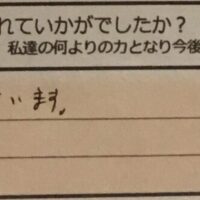 れていかがでしたか？
私達の何よりの力となり今後
います。